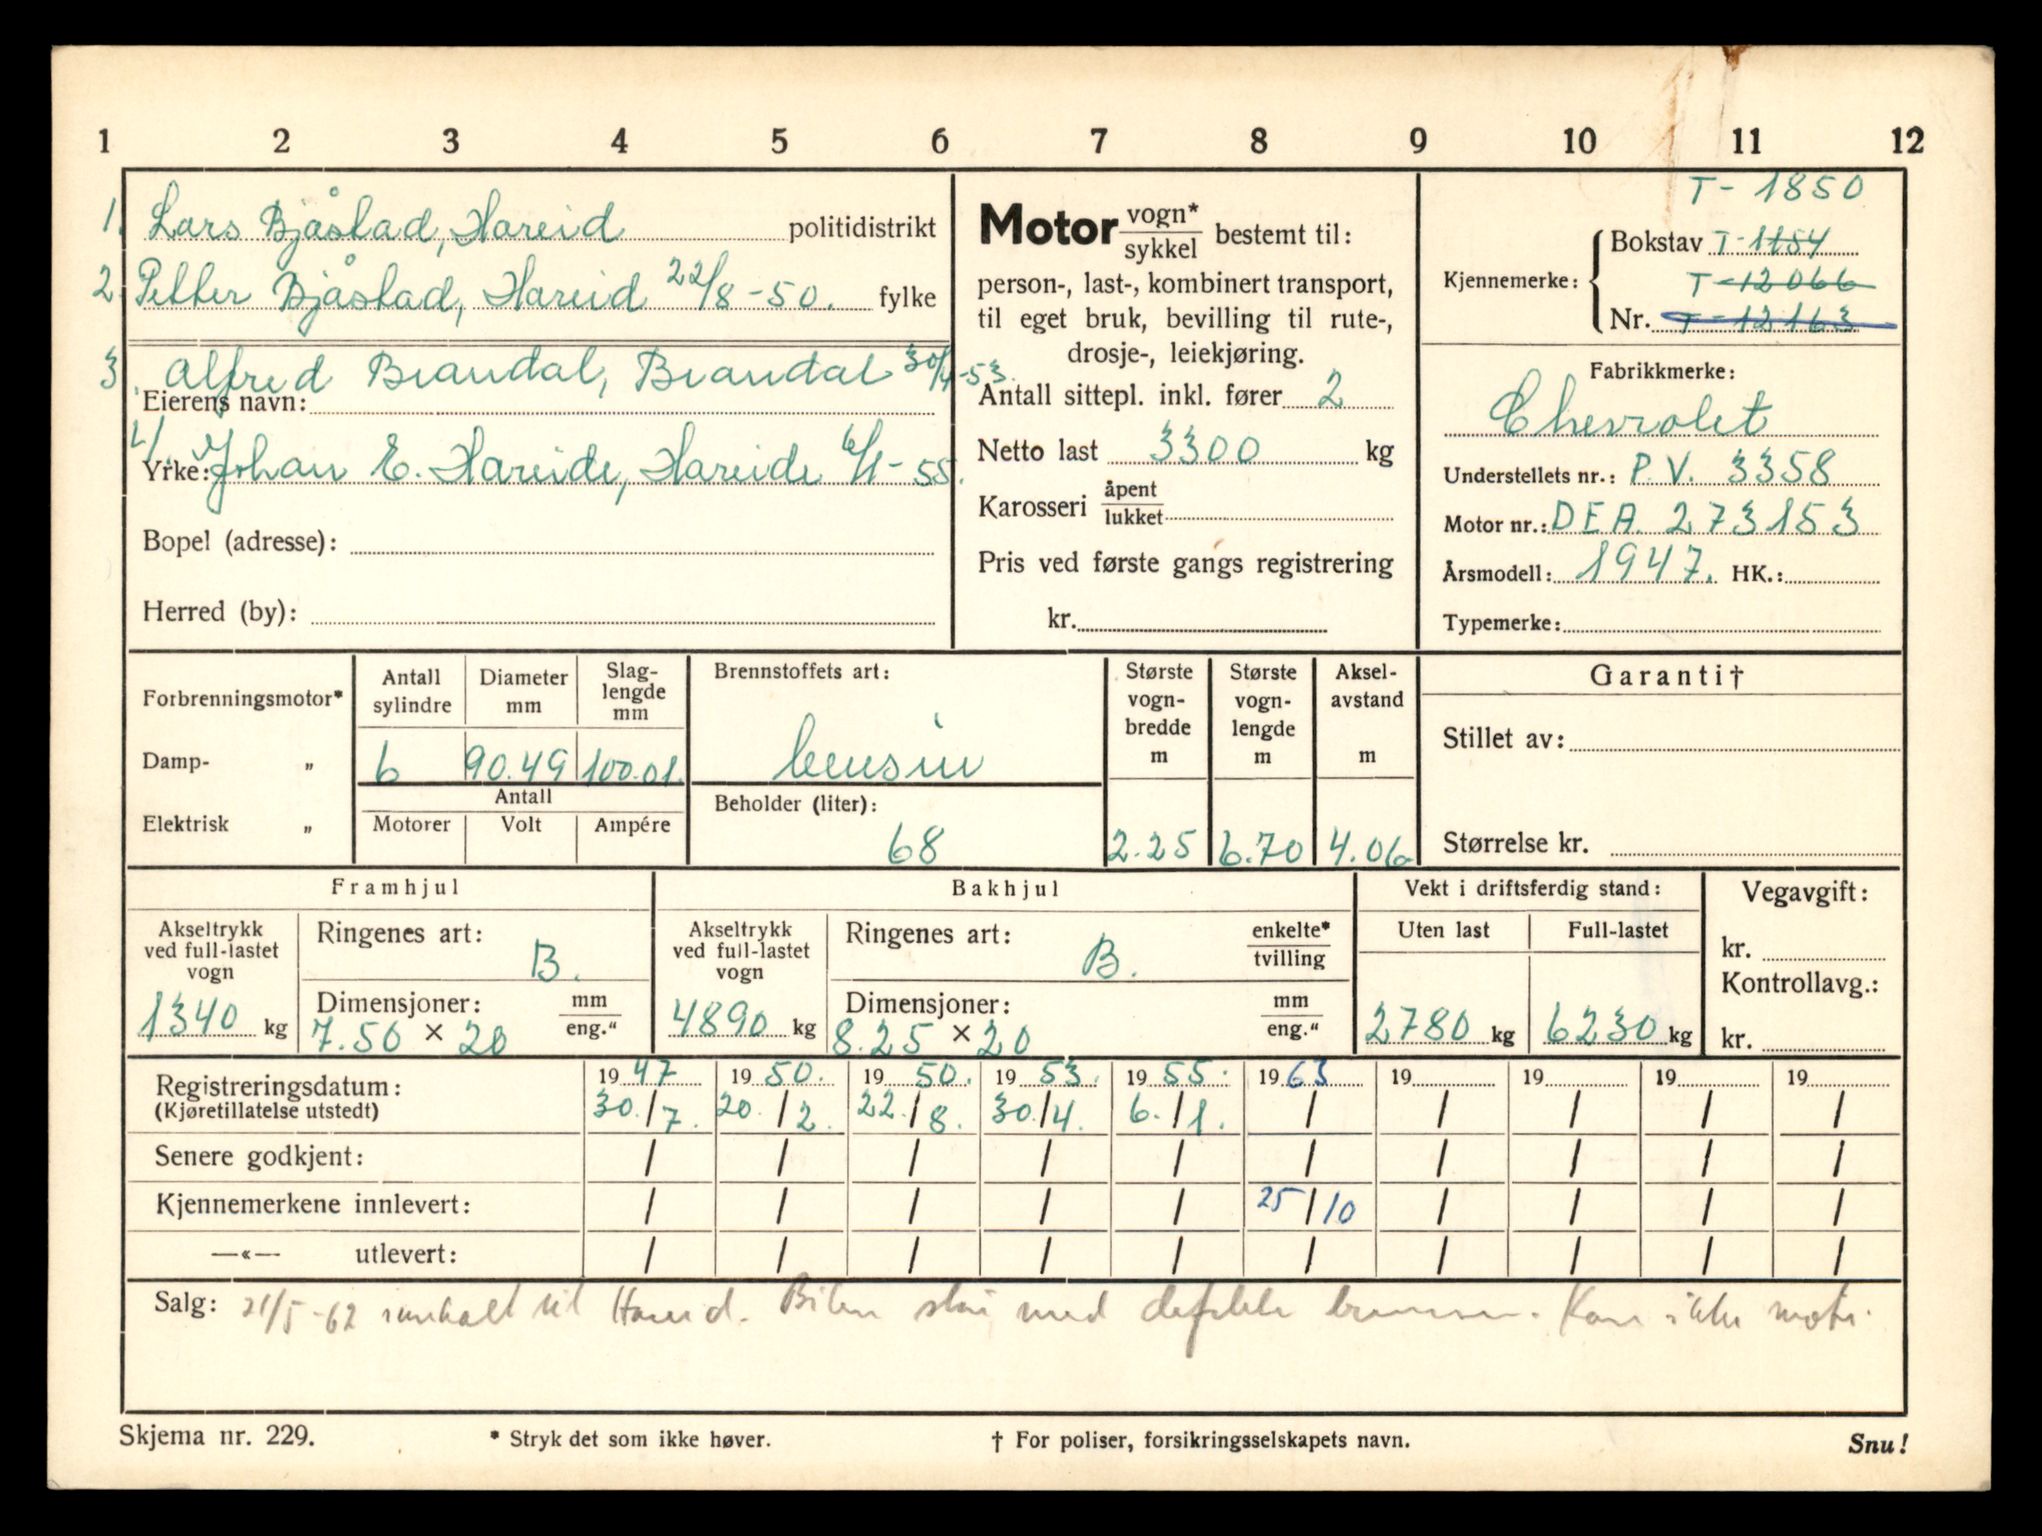 1 2 3 4 5 6 7 8 9 10 11 12
1. Lars Bjåstad, Hareid politidistrikt
2. Petter Bjåstad, Hareid 22/8-50. fylke
3. Alfred Brandal, Brandal 30/4-53.
Eierens navn:
4/. Yrke: Johan E. Hareide, Hareide 6/1-55.
Bopel (adresse):
Herred (by):
Motor vogn* / sykkel bestemt til:
person-, last-, kombinert transport,
til eget bruk, bevilling til rute-,
drosje-, leiekjøring.
Antall sittepl. inkl. fører 2
Netto last 3300 kg
Karosseri åpent / lukket
Pris ved første gangs registrering
kr.
T-1850
Kjennemerke: Bokstav T-1154
T-12066
Nr. T-12163
Fabrikkmerke:
Chevrolet
Understellets nr.: P.V. 3358
Motor nr.: DEA. 273153
Årsmodell: 1947. HK.:
Typemerke:
Forbrenningsmotor*
Damp- „
Elektrisk „
Antall sylindre
6
Diameter mm
90.49
Slag-lengde mm
100.01.
Antall
Motorer Volt Ampére
Brennstoffets art:
bensin
Beholder (liter):
68
Største vogn-bredde m
2.25
Største vogn-lengde m
6.70
Aksel-avstand m
4.06
Garanti†
Stillet av:
Størrelse kr.
Framhjul
Akseltrykk
ved full-lastet
vogn
1340 kg
Ringenes art:
B.
Dimensjoner: mm / eng."
7.50 × 20
Bakhjul
Akseltrykk
ved full-lastet
vogn
4890 kg
Ringenes art: enkelte* / tvilling
B.
Dimensjoner: mm / eng."
8.25 × 20
Vekt i driftsferdig stand:
Uten last
2780 kg
Full-lastet
6230 kg
Vegavgift:
kr.
Kontrollavg.:
kr.
Registreringsdatum: 19 47 19 50. 19 50. 19 53. 19 55. 19 63 19 19 19 19
(Kjøretillatelse utstedt) 30./7. 20./2. 22./8. 30./4. 6./1. / / / / /
Senere godkjent: / / / / / / / / / /
Kjennemerkene innlevert: / / / / / 25/10 / / / /
—«— utlevert: / / / / / / / / / /
Salg: 21/5-62 til Hareid. Bilen med defekte bremser. Kan ikke
Skjema nr. 229. * Stryk det som ikke høver. † For poliser, forsikringsselskapets navn. Snu!